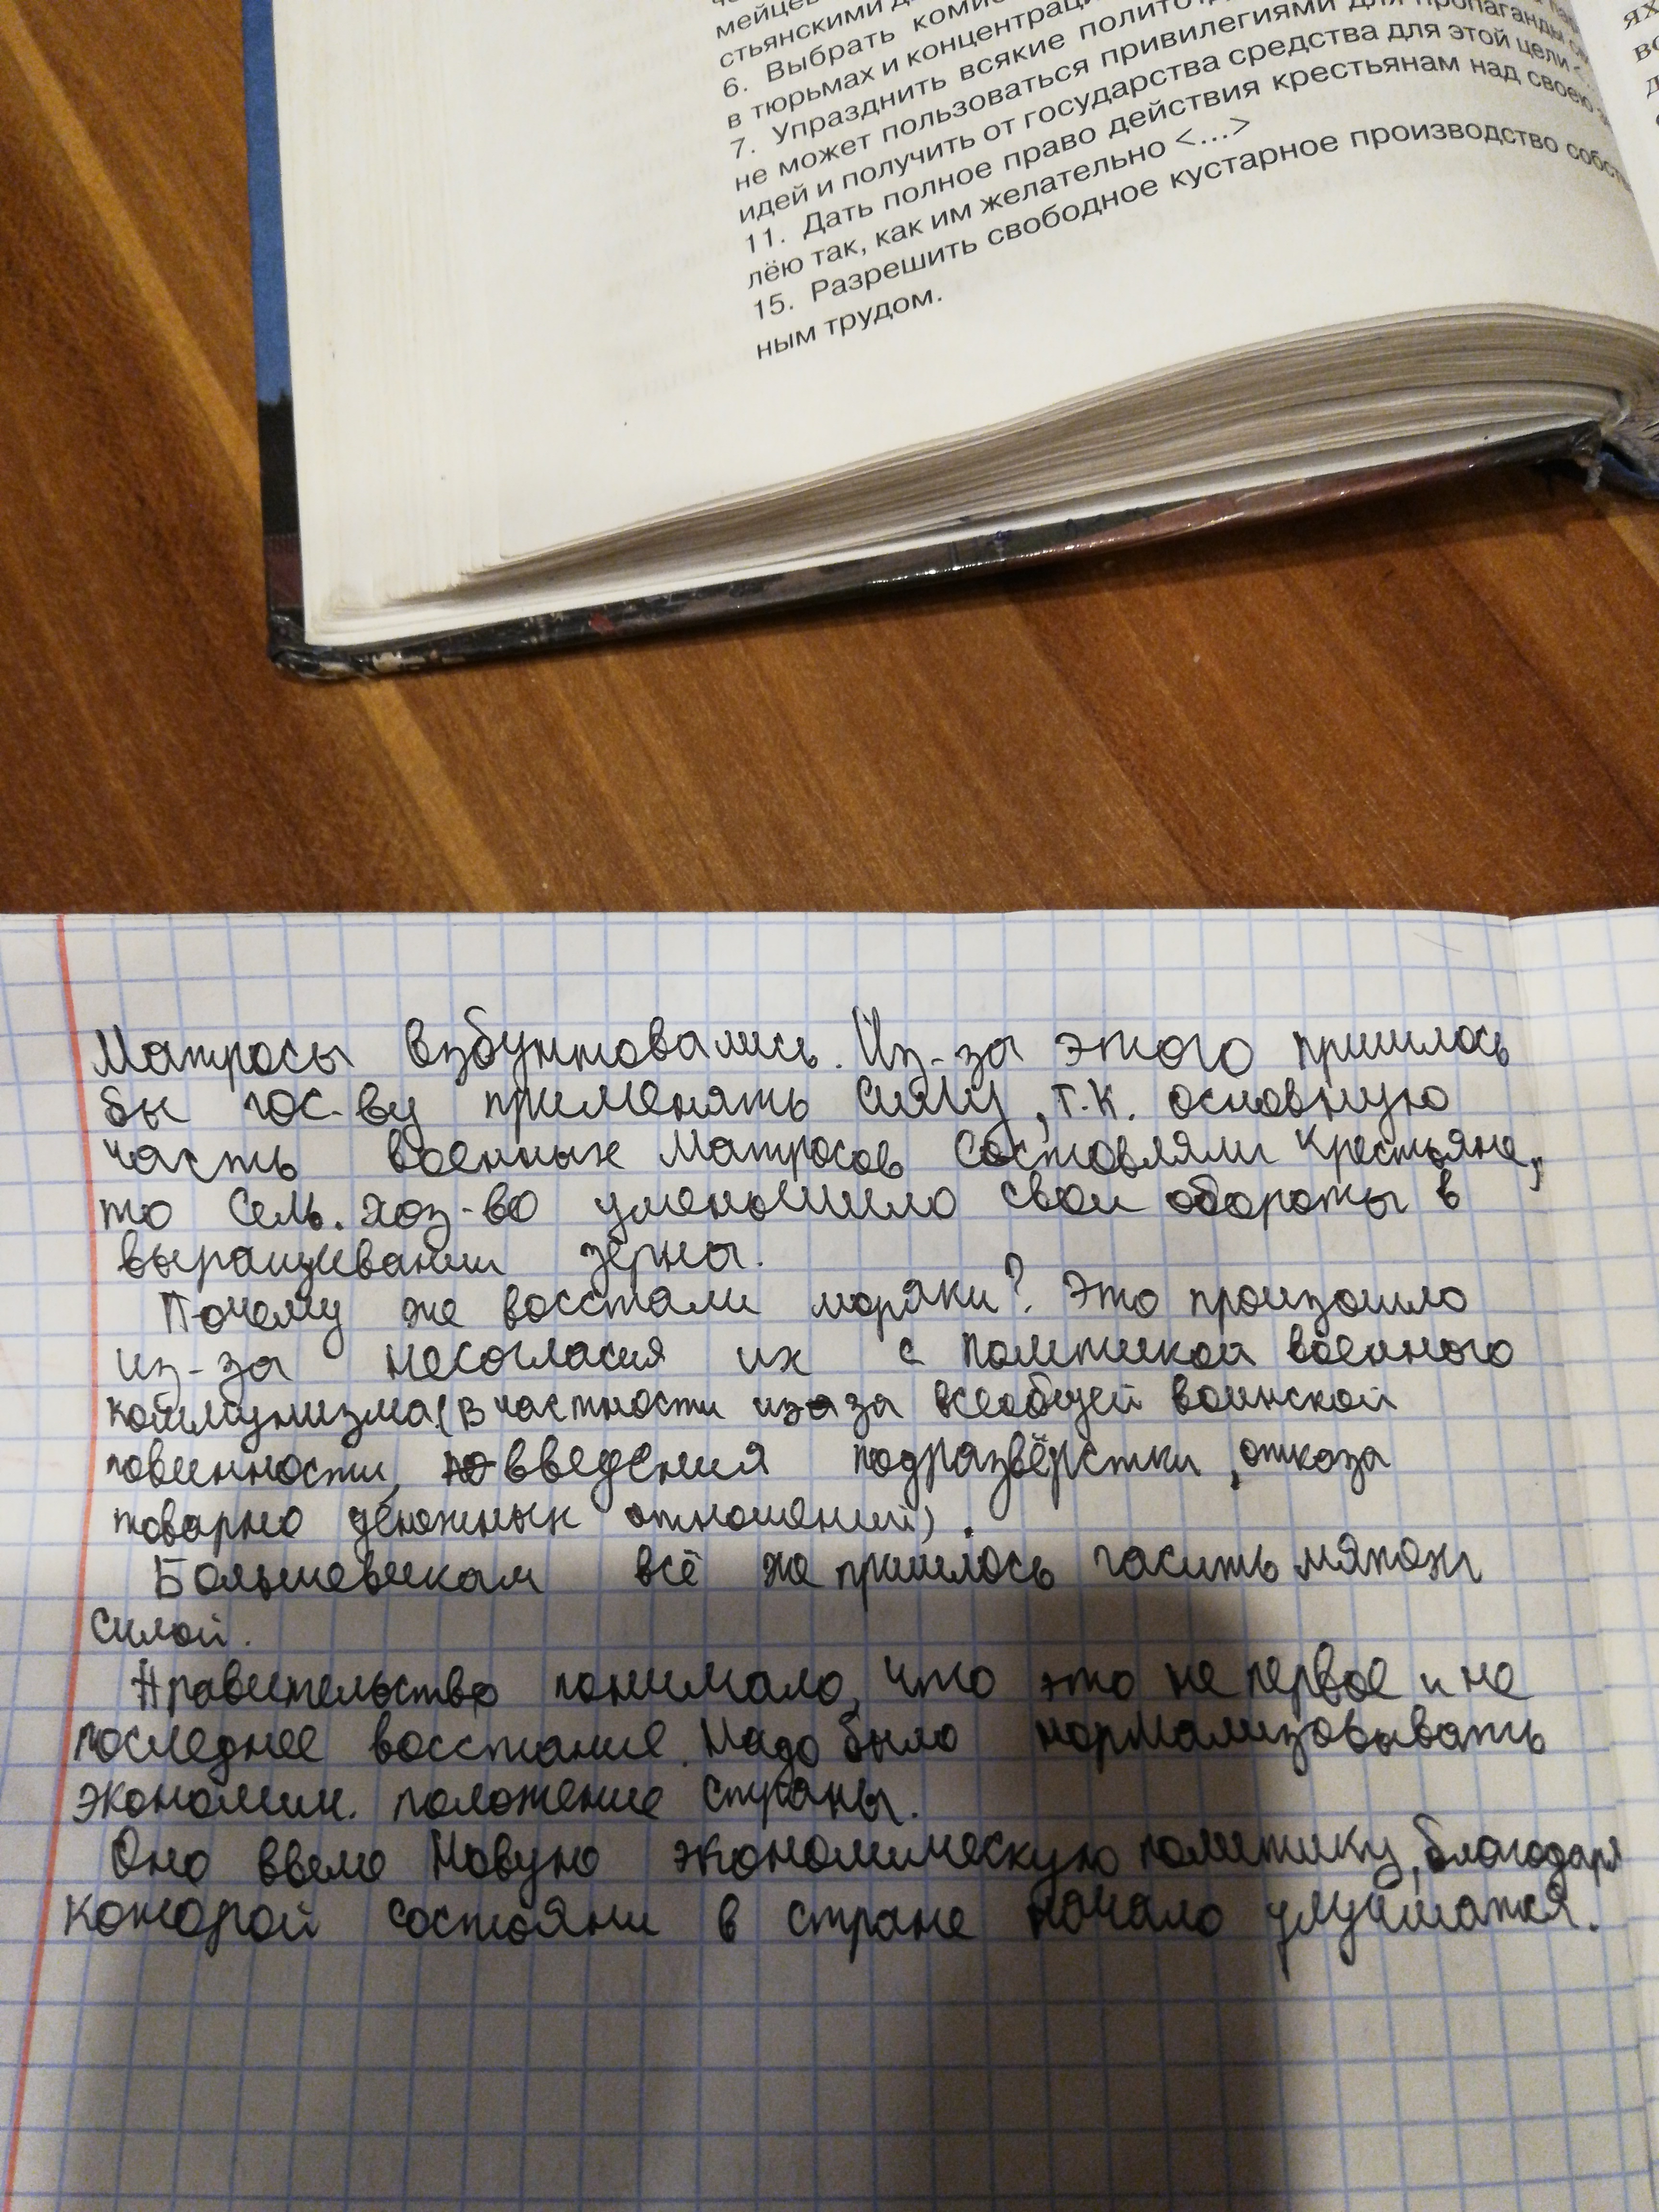 мейцев
стьянскими
6. Выбрать
в тюрьмах и
7. Упразднить всякие
не может пользоваться привилегиями для пропаганды
идей и получить от государства средства для этой цели
11. Дать полное право действия крестьянам над своею
лёю так, как им желательно <...>
15. Разрешить свободное кустарное производство
ным трудом.
Матросы взбунтовались. Из-за этого пришлось
бы гос-ву применять силу, т.к. основную
часть военных матросов состовляли крестьяне,
то сель. хоз-во уменьшило свои обороты в
выращивании зёрна.
Почему же восстали моряки? Это произошло
из-за несогласия их с политикой военного
коммунизма (в частности из за всеобщей воинской
повинности, введения подразвёрстки, отказа
товарно денежных отношений).
Большевикам всё же пришлось гасить мятеж
силой.
Правительство понимало, что это не первое и не
последнее восстание. Надо было нормализовывать
экономич. положение страны.
Оно ввело Новую экономическую политику, благодаря
которой состояни в стране начало улучшатся.